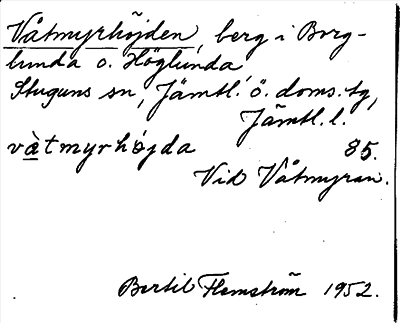 Våtmyrhöjden, berg i Borg-
lunda o. Höglunda
Stuguns sn, Jämtl. ö. doms. tg,
Jämtl. l.
vàtmyrhöjda 85.
Vid Våtmyran.
Bertil Flemström 1952.